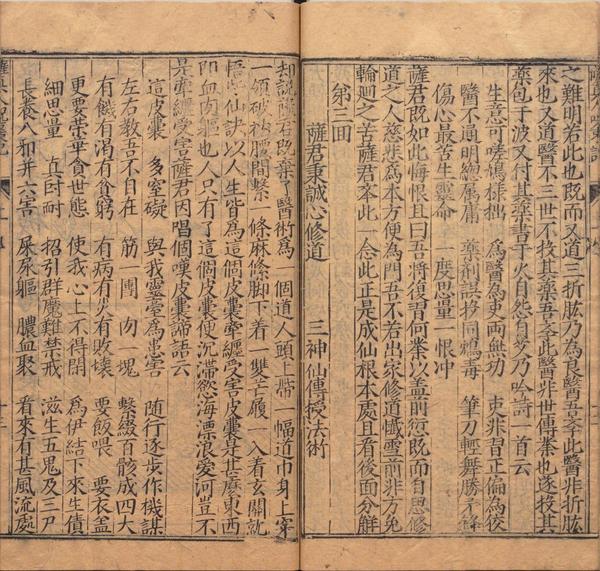 之難明若此也既而又道三折肱乃為良醫吾夲此醫非折肱
來也又道醫不三世不投其藥吾夲此醫非世傳業也遂投其
藥包于波又付其藥書于火自然自乃吟詩一首云
生意可嗟鳩樣拙 為醫為吏兩無功 吏非習正偏為佼
醫不通明總属庸 藥劑誤投同鴆毒 筆刀輕舞勝鋒
傷心最苦生靈命 一度思量一恨冲
薩君既如此悔恨且曰吾將復習何業以盖前愆既而自思修
道之人慈悲為本方便為門吾不若出家修道懺雪前非方免
輪廻之苦薩君夲此一念此正是成仙根本處且看後面分觧
第三囬
薩君秉誠心修道 三神仙傳授法術
却説薩君既棄了醫術為一個道人頭上帶一幅道巾身上穿
一領破衲腰間繫一條麻絛脚下着一雙芒屨一入着玄關就
悟仙訣以人生皆為這個皮囊牽纏受害皮囊是甚麽東西
即血肉軀也人只有了這個皮囊便沉滯慾海漂浪愛河豈不
是牽纏受害薩君因唱個嘆皮囊諦語云
這皮囊 多窒礙 與我靈臺為患害 隨行逐步作機謀
左右教吾不自在 筋一團 肉一塊 繫綴百骸成四大
有饑有渴有貧窮 有病有災有敗壞 要飯喂 要衣盖
更要榮華貪世態 使我心上不得閑 為伊結下來生債
細思量 真可耐 招引群魔難禁戒 滋生五鬼及三尸
長養八邪并六害 屎尿軀 膿血聚 看來有甚風流處